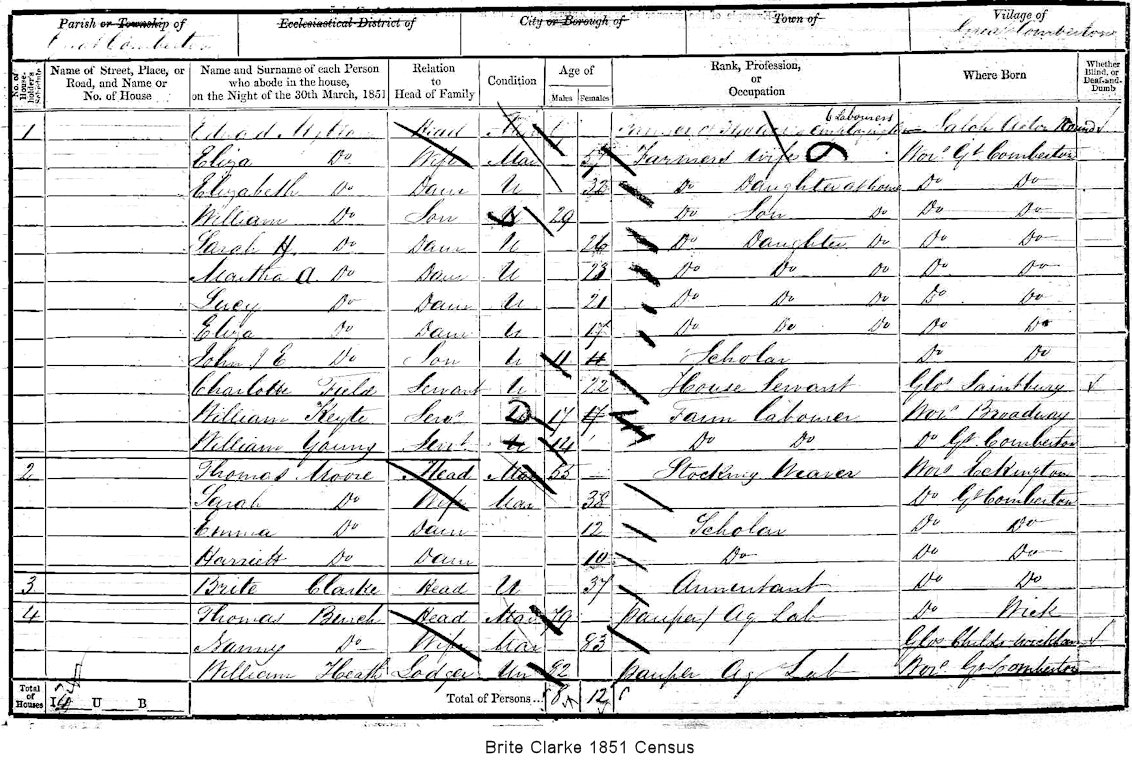 Parish or Township of Ecclesiastical District of City or Borough of Town of Village of
Great Comberton Great Comberton
No. of House-holder's Schedule Name of Street, Place, or Road, and Name or No. of House Name and Surname of each Person who abode in the house, on the Night of the 30th March, 1851 Relation to Head of Family Condition Age of Males Females Rank, Profession, or Occupation Where Born Whether Blind, or Deaf-and-Dumb
1 Head Mar 6 Labourers
Eliza Do Wife Mar 57 Farmers Wife Wor. Gt Comberton
Elizabeth Do Daur U 32 Do Daughter at home Do Do
William Do Son U 29 Do Son Do Do Do
Sarah H. Do Daur U 26 Do Daughter Do Do Do
Martha A Do Daur U 23 Do Do Do Do Do
Lucy Do Daur U 21 Do Do Do Do Do
Eliza Do Daur U 17 Do Do Do Do Do
John J E Do Son U 11 11 Scholar Do Do
Charlotte Field Servant U 22 House Servant Glos Saintbury
William Keyte Servt U 17 17 Farm Labourer Wor. Broadway
William Young Servt U 14 Do Do Do Gt Comberton
2 Thomas Moore Head Mar 55 Stocking Weaver Wor. Eckington
Sarah Do Wife Mar 38 Do Gt Comberton
Emma Do Daur 12 Scholar Do Do
Harriett Do Daur 10 Do Do Do
3 Brite Clarke Head U 37 Annuitant Do Do
4 Thomas Bench Head Mar 79 Pauper Ag Lab Do Wick
Nanny Do Wife Mar 83 Glos Childs-wickham
William Heath Lodger Un 82 Pauper Ag Lab Wor. Gt Comberton
Total of Houses I U B Total of Persons... 8 12
Brite Clarke 1851 Census